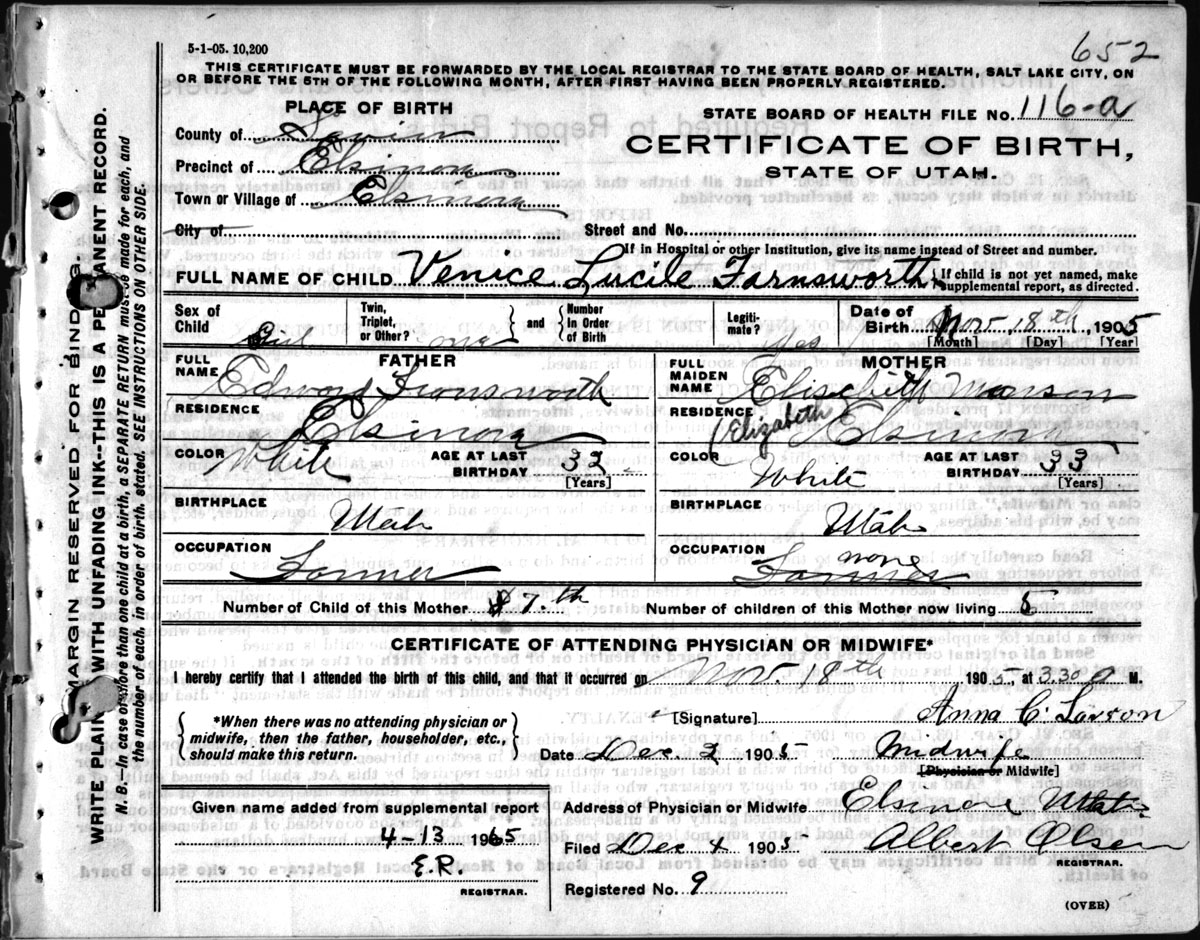 652
5-1-05. 10,200
THIS CERTIFICATE MUST BE FORWARDED BY THE LOCAL REGISTRAR TO THE STATE BOARD OF HEALTH, SALT LAKE CITY, ON
OR BEFORE THE 5TH OF THE FOLLOWING MONTH, AFTER FIRST HAVING BEEN PROPERLY REGISTERED.
PLACE OF BIRTH
County of Sevier
Precinct of Elsinore
Town or Village of Elsinore
STATE BOARD OF HEALTH FILE No. 116-a
CERTIFICATE OF BIRTH,
STATE OF UTAH.
City of Street and No.
If in Hospital or other Institution, give its name instead of Street and number.
FULL NAME OF CHILD Venice Lucile Farnsworth { If child is not yet named, make supplemental report, as directed.
Sex of Child Girl Twin, Triplet, or Other? one } and { Number in Order of Birth Legiti- mate? Yes Date of Birth Nov. 18th, 1905
[Month] [Day] [Year]
FATHER
FULL NAME Edward Farnsworth
RESIDENCE Elsinore
COLOR White AGE AT LAST BIRTHDAY 32
[Years]
BIRTHPLACE Utah
OCCUPATION Farmer
MOTHER
FULL MAIDEN NAME Elisebith Manson
RESIDENCE (Elizabeth Elsinore
COLOR White AGE AT LAST BIRTHDAY 33
[Years]
BIRTHPLACE Utah
OCCUPATION none Farmer
Number of Child of this Mother 7.th Number of children of this Mother now living 5
CERTIFICATE OF ATTENDING PHYSICIAN OR MIDWIFE*
I hereby certify that I attended the birth of this child, and that it occurred on Nov. 18th 1905 at 3.30 a M.
{ *When there was no attending physician or }
midwife, then the father, householder, etc.,
should make this return.
[Signature] Anna C. Larson
Date Dec 2 1905 Midwife
[Physician or Midwife]
Given name added from supplemental report
4-13 1965
E.R.
REGISTRAR.
Address of Physician or Midwife Elsinore Utah
Filed Dec 4 1905 Albert Olsen
REGISTRAR.
Registered No. 9
(OVER)
MARGIN RESERVED FOR BINDING.
WRITE PLAINLY WITH UNFADING INK--THIS IS A PERMANENT RECORD.
N. B.--In case of more than one child at a birth, a SEPARATE RETURN must be made for each, and
the number of each, in order of birth, stated. SEE INSTRUCTIONS ON OTHER SIDE.